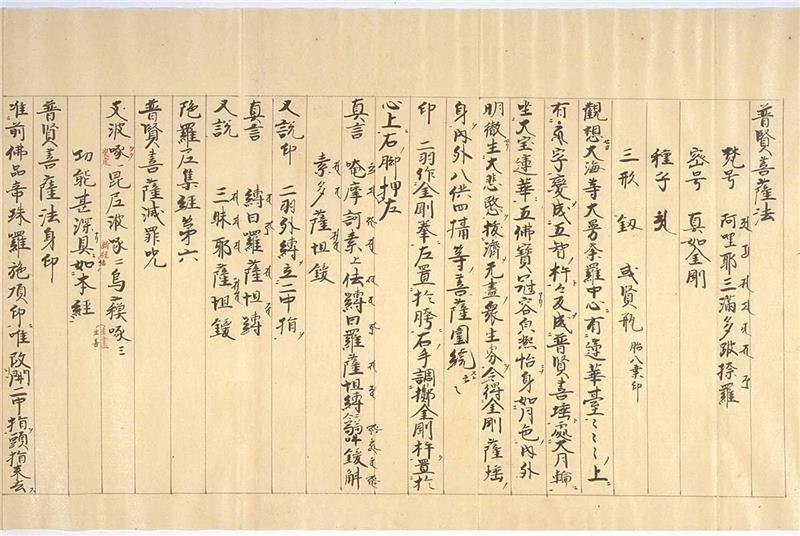 普賢菩薩法
梵号 阿哩耶三滿多跛捺羅
密号 真如金剛
種子
三形 釼 或賢瓶 胎八葉印
觀想大海等大曼荼羅中心有蓮華臺〻〻〻上
有字變成五智杵〻変成普賢菩薩處大月輪
坐大宝蓮華五佛寶冠容白凞怡身如月色内外
明徹生大悲愍拔濟无盡衆生界令得金剛薩埵
身内外八供四攝等菩薩圍繞云〻
印 二羽作金剛拳左置於胯右手調擲金剛杵置於
心上右脚押左
真言 唵摩訶素上佉縛日羅薩怛縛翁吽鑁斛
素多薩怛鑁
又説印 二羽外縛立二中指
真言 縛日羅薩怛縛
又説 三昧耶薩怛鑁
陀羅尼集經第六
普賢菩薩滅罪咒
支波啄 毘尼波啄二 烏蘇啄三
功能甚深具如本經
普賢菩薩法身印
准前佛品帝珠羅施項印唯改開二中指頭指来去